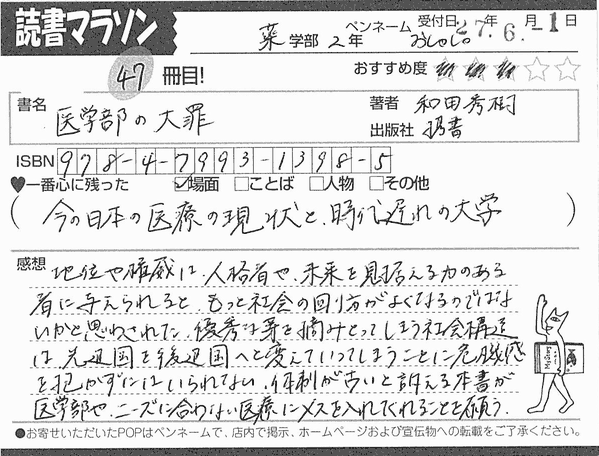 読書マラソン
薬 学部 2年 ペンネーム おしゃじ。 受付日 '27年 6.月 -1日
47 冊目!
おすすめ度 ★★★☆☆
書名 医学部の大罪
著者 和田秀樹
出版社 扶書
ISBN 978-4-7993-1398-5
♥一番心に残った ☑場面 □ことば □人物 □その他
(今の日本の医療の現状と、時代遅れの大学)
感想 地位や権威は、人格者や、未来を見据える力のある
者に与えられると、もっと社会の回り方がよくなるのではな
いかと思わされた。優秀な芽を摘みとってしまう社会構造
は、先進国を後進国へと変えていってしまうことに危機感
を抱かずにはいられない。体制が古いと訴える本書が
医学部や、ニーズに合わない医療にメスを入れてくれることを願う。
●お寄せいただいたPOPはペンネームで、店内で掲示、ホームページおよび宣伝物への転載をご了承ください。